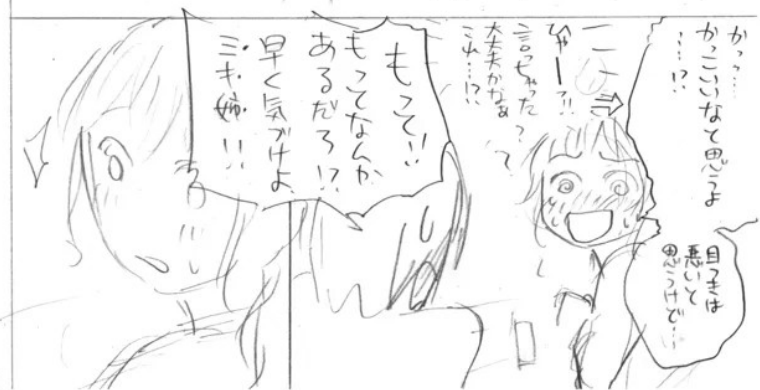 かっ…
かっこいいなと思うよ
……!?
目つきは
悪いと
思うけど…
ひゃーっ!!
言っちゃった
大丈夫かなぁ
これ…!?
もって!!
もってなんか
あるだろ!?
早く気づけよ
ミキ姉!!